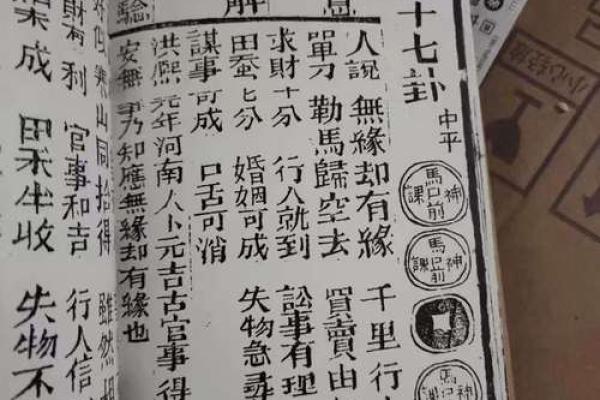 十七卦 中平
馬前神課
馬前神課
馬前神課
人說無緣却有緣 千里行
單刀勒馬歸空去 買賣由
解
求財十分 行人就到 訟事有理
田蚕七分 婚姻可成 失物急尋
謀事可成 口舌可消
驗
洪熙元年河南人卜元吉古官事得
安無乃知應無緣却有緣也
寒山同拾得 雖然
有利 官事和吉 行人信
成 田禾半收 失物不
小心轻放